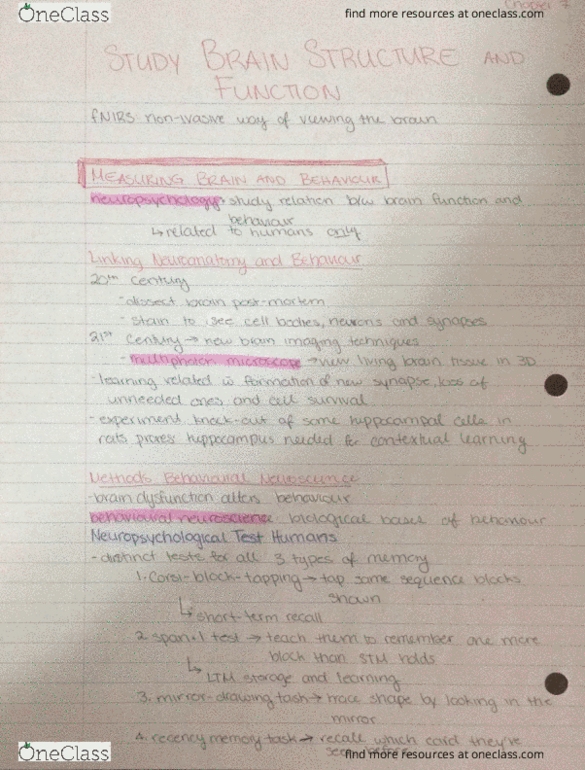 OneClass
find more resources at oneclass.com
Chapter 7
STUDY BRAIN STRUCTURE AND
FUNCTION
fNIRS non-ivasive way of viewing the brain
MEASURING BRAIN AND BEHAVIOUR
neuropsychology→ study relation b/w brain function and
behaviour
↳ related to humans only
Linking Neuroanatomy and Behaviour
20th century
- dissect brain post-mortem
- stain to see cell bodies, neurons and synapses
21st century → new brain imaging techniques
- multiphoton microscope → view living brain tissue in 3D
- learning related w formation of new synapse, loss of
unneeded ones and cell survival
- experiment knock-out of some hippocampal cells in
rats proves hippocampus needed for contextual learning
Methods Behavioural Neuroscience
- brain dysfunction alters behaviour
behavioural neuroscience biological bases of behaviour
Neuropsychological Test Humans
- distinct tests for all 3 types of memory
1. Corsi-block-tapping → tap same sequence blocks
shown
↳ short-term recall
2. span+1 test → teach them to remember one more
block than STM holds
↳ LTM storage and learning
3. mirror-drawing task → trace shape by looking in the
mirror
4. recency memory task → recall which card they've
seen before
OneClass
find more resources at oneclass.com